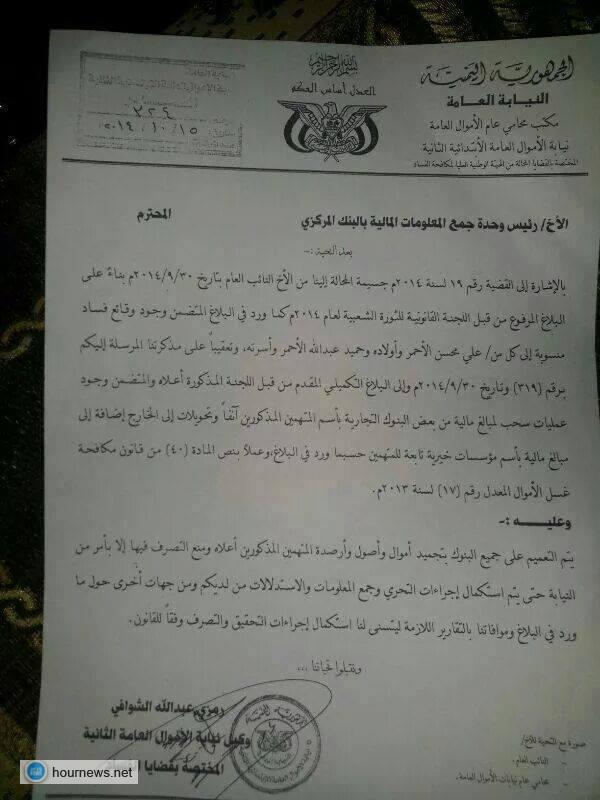 بسم الله الرحمن الرحيم
العدل أساس الحكم
الجمهورية اليمنية
النيابة العامة
مكتب محامي عام الأموال العامة
نيابة الأموال العامة الأبتدائية الثانية
المختصة بالقضايا المحالة من الهيئة الوطنية العليا لمكافحة الفساد
٣٢٤
٢٠١٤/١٠/١٥
الأخ/ رئيس وحدة جمع المعلومات المالية بالبنك المركزي المحترم
بعد التحية :-
بالإشارة إلى القضية رقم ١٩ لسنة ٢٠١٤م جسيمة المحالة إلينا من الأخ النائب العام بتاريخ ٢٠١٤/٩/٣٠م بناءً على
البلاغ المرفوع من قبل اللجنة القانونية للثورة الشعبية لعام ٢٠١٤م كما ورد في البلاغ المتضمن وجود وقائع فساد
منسوبة إلى كل من/ علي محسن الأحمر وأولاده وحميد عبدالله الأحمر وأسرته، وتعقيباً على مذكرتنا المرسلة إليكم
برقم (٣١٩) وتاريخ ٢٠١٤/٩/٣٠م وإلى البلاغ التكميلي المقدم من قبل اللجنة المذكورة أعلاه والمتضمن وجود
عمليات سحب لمبالغ مالية من بعض البنوك التجارية بأسم المتهمين المذكورين آنفاً وتحويلات إلى الخارج إضافة إلى
مبالغ مالية بأسم مؤسسات خيرية تابعة للمتهمين حسبما ورد في البلاغ،وعملاً بنص المادة (٤٠) من قانون مكافحة
غسل الأموال المعدل رقم (١٧) لسنة ٢٠١٣م.
وعليــــه :-
يتم التعميم على جميع البنوك بتجميد أموال وأصول وأرصدة المتهمين المذكورين أعلاه ومنع التصرف فيها إلا بأمر من
النيابة حتى يتم استكمال إجراءات التحري وجمع المعلومات والاستدلالات من لديكم ومن جهات أخرى حول ما
ورد في البلاغ وموافاتنا بالتقارير اللازمة ليتسنى لنا استكمال إجراءات التحقيق والتصرف وفقاً للقانون.
وتقبلوا تحياتنا ...
رمزي عبدالله الشوافي
وكيل نيابة الأموال العامة الثانية
المختصة بقضايا
صورة مع التحية للأخ/
- النائب العام.
- محامي عام نيابات الأموال العامة.
hournews.net